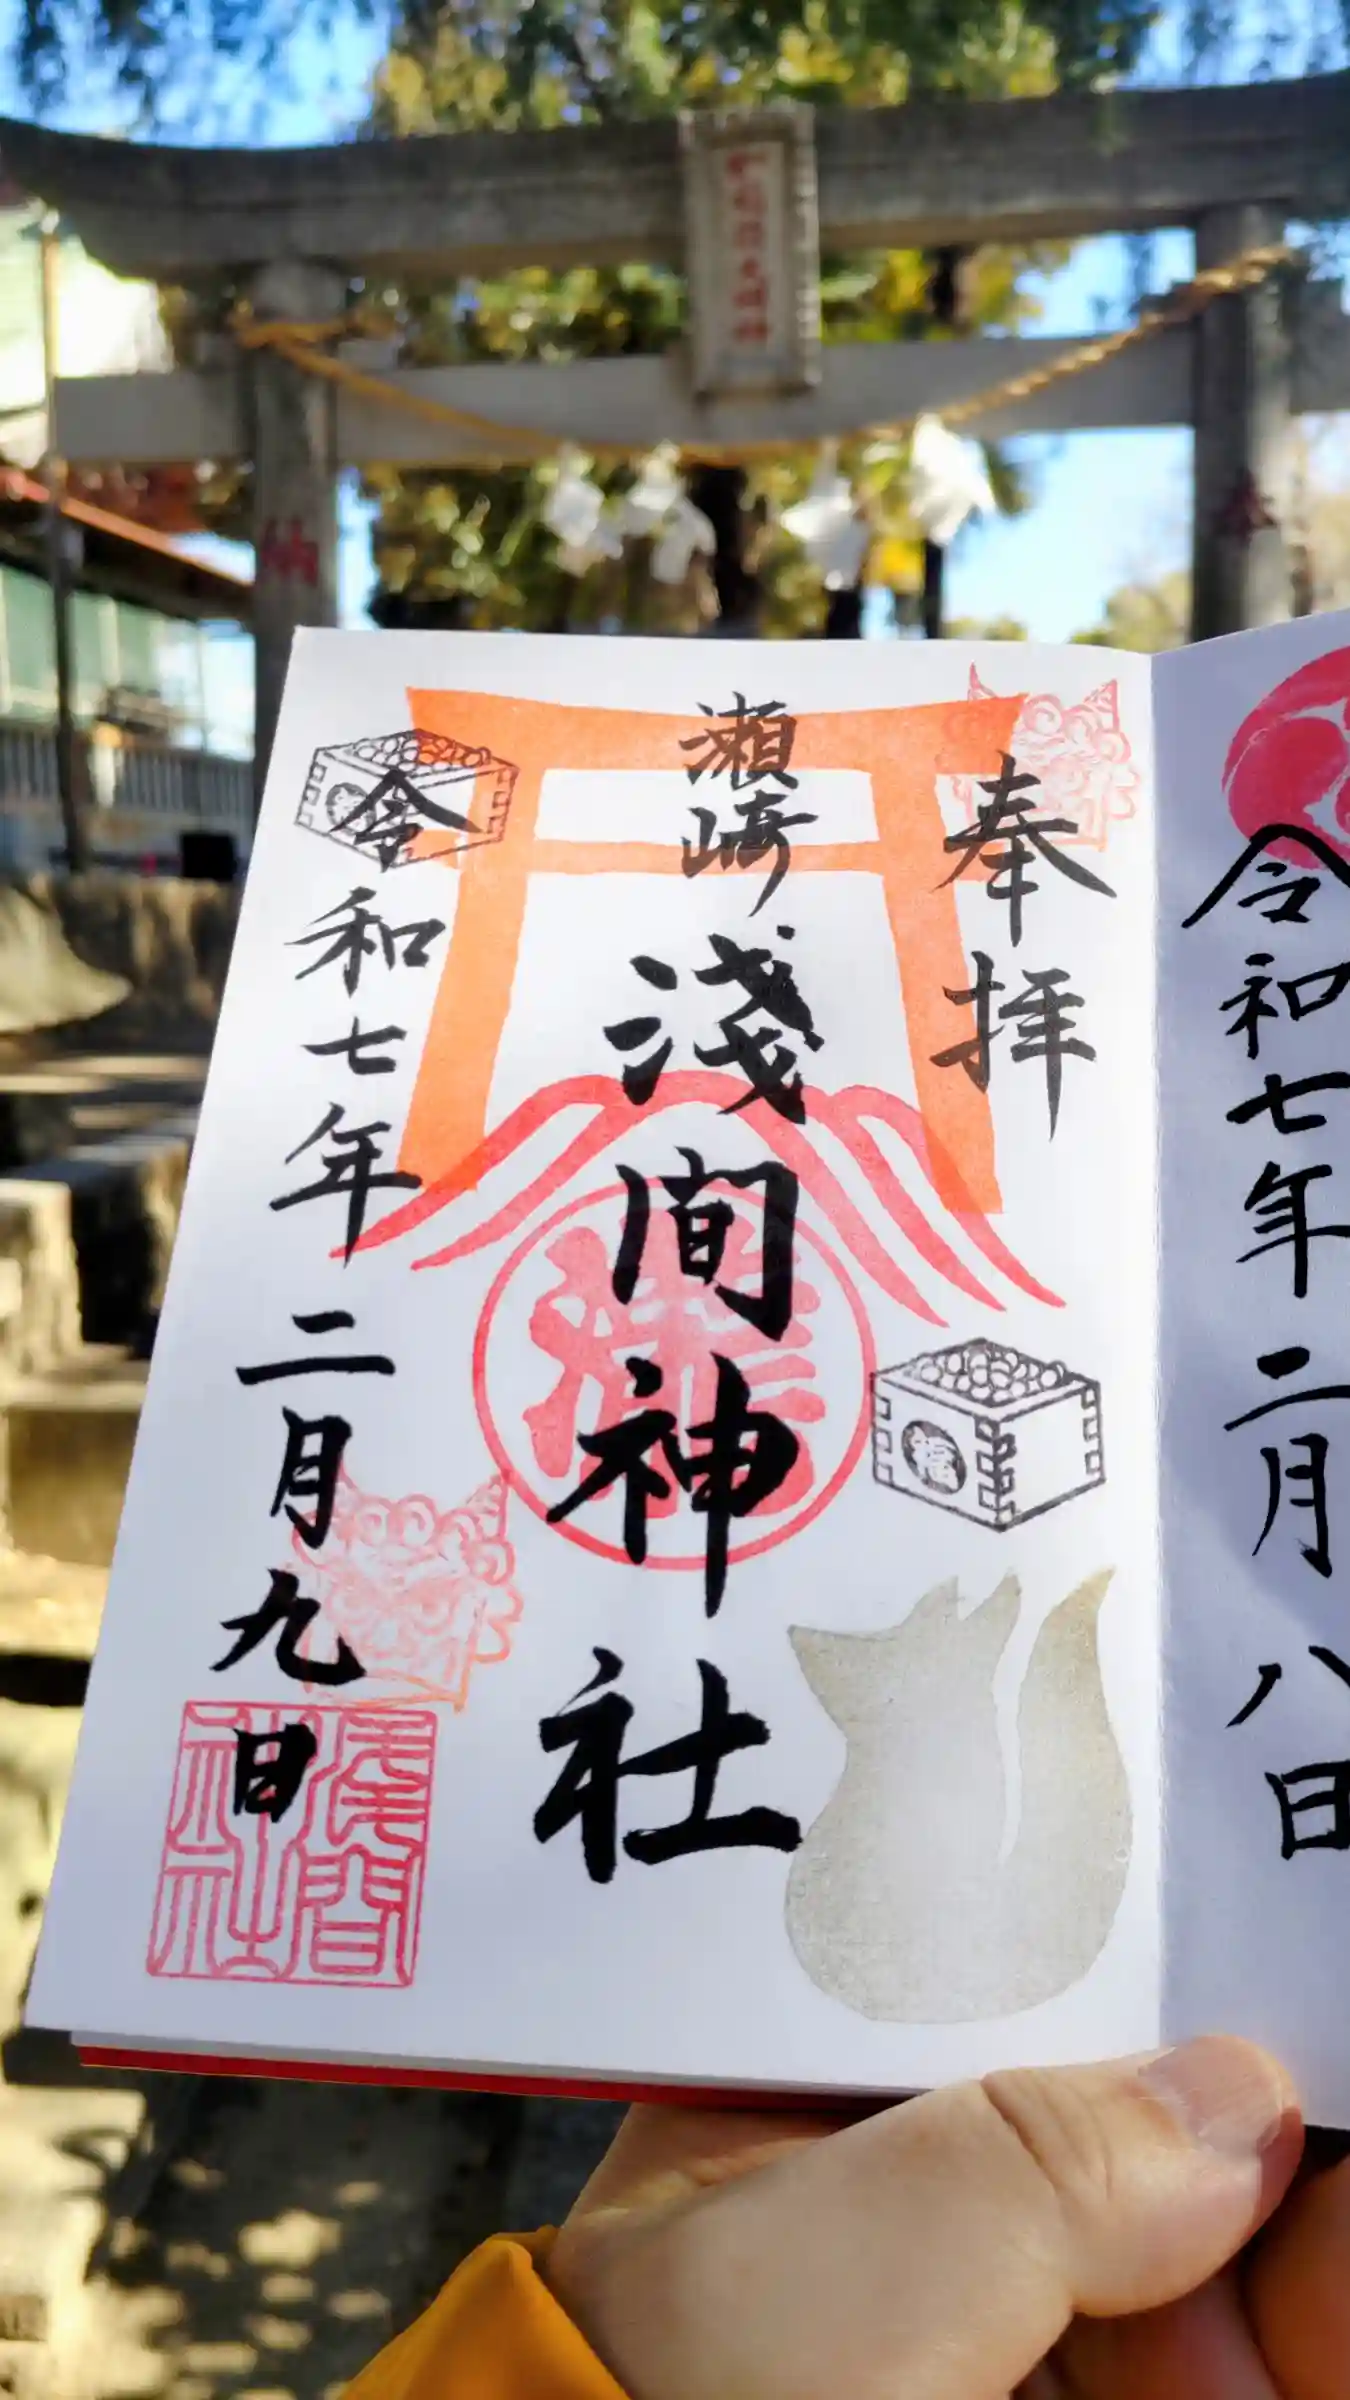 令和七年二月八日
奉拝
瀬崎
淺間神社
福
令和七年二月九日
淺間
神社